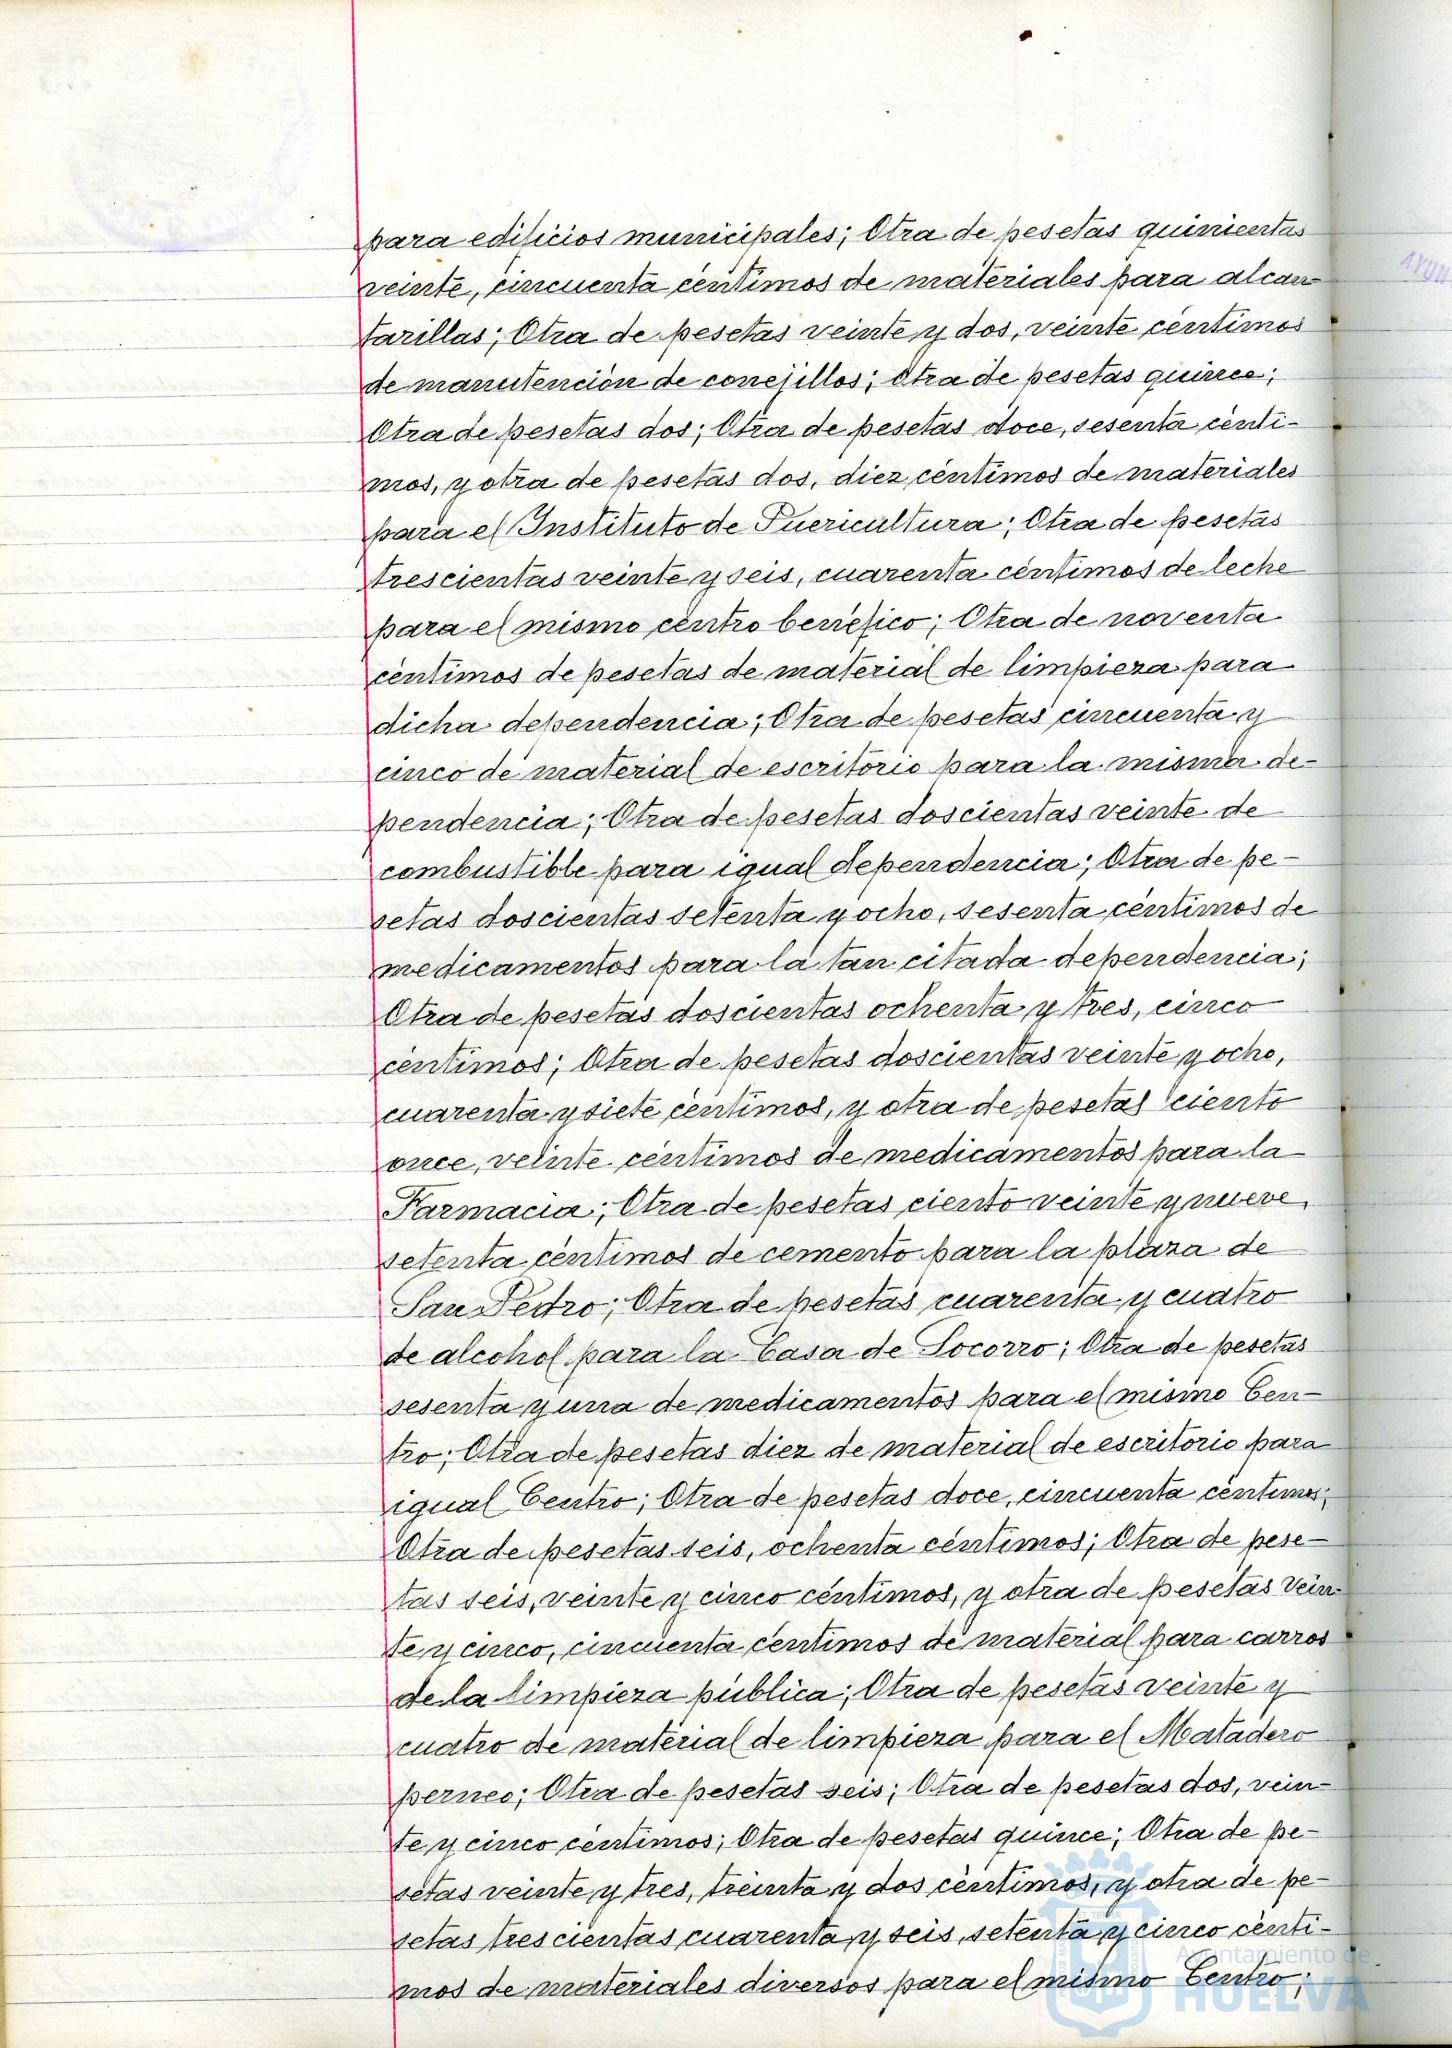 para edificios municipales; Otra de pesetas quinientas
veinte, cincuenta céntimos de materiales para alcan-
tarillas; Otra de pesetas veinte y dos, veinte céntimos
de manutención de conejillos; Otra de pesetas quince;
Otra de pesetas dos; Otra de pesetas doce, sesenta cénti-
mos, y otra de pesetas dos, diez céntimos de materiales
para el Instituto de Puericultura; Otra de pesetas
trescientas veinte y seis, cuarenta céntimos de leche
para el mismo centro benéfico; Otra de noventa
céntimos de pesetas de material de limpieza para
dicha dependencia; Otra de pesetas cincuenta y
cinco de material de escritório para la misma de-
pendencia; Otra de pesetas doscientas veinte de
combustible para igual dependencia; Otra de pe-
setas doscientas setenta y ocho, sesenta céntimos de
medicamentos para la tan citada dependencia;
Otra de pesetas doscientas ochenta y tres, cinco
céntimos; Otra de pesetas doscientas veinte y ocho,
cuarenta y siete céntimos, y otra de pesetas ciento
once, veinte céntimos de medicamentos para la
Farmacia; Otra de pesetas ciento veinte y nueve,
setenta céntimos de cemento para la plaza de
San Pedro; Otra de pesetas cuarenta y cuatro
de alcohol para la Casa de Socorro; Otra de pesetas
sesenta y una de medicamentos para el mismo Cen-
tro; Otra de pesetas diez de material de escritorio para
igual Centro; Otra de pesetas doce, cincuenta céntimos;
Otra de pesetas seis, ochenta céntimos; Otra de pese-
tas seis, veinte y cinco céntimos, y otra de pesetas vein-
te y cinco, cincuenta céntimos de material para carros
de la limpieza pública; Otra de pesetas veinte y
cuatro de material de limpieza para el Matadero
perneo; Otra de pesetas seis; Otra de pesetas dos, vein-
te y cinco céntimos; Otra de pesetas quince; Otra de pe-
setas veinte y tres, treinta y dos céntimos, y otra de pe-
setas trescientas cuarenta y seis, setenta y cinco cénti-
mos de materiales diversos para el mismo Centro;
Ayuntamiento de
HUELVA
AYUN